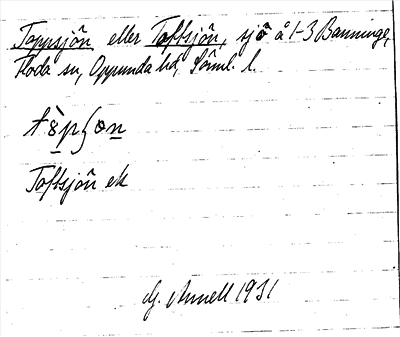 Toppsjön eller Toftsjön, sjö å 1-3 Banninge,
Floda sn, Oppunda hd, Söml. l.
Toftsjön ek
G. Annell 1931